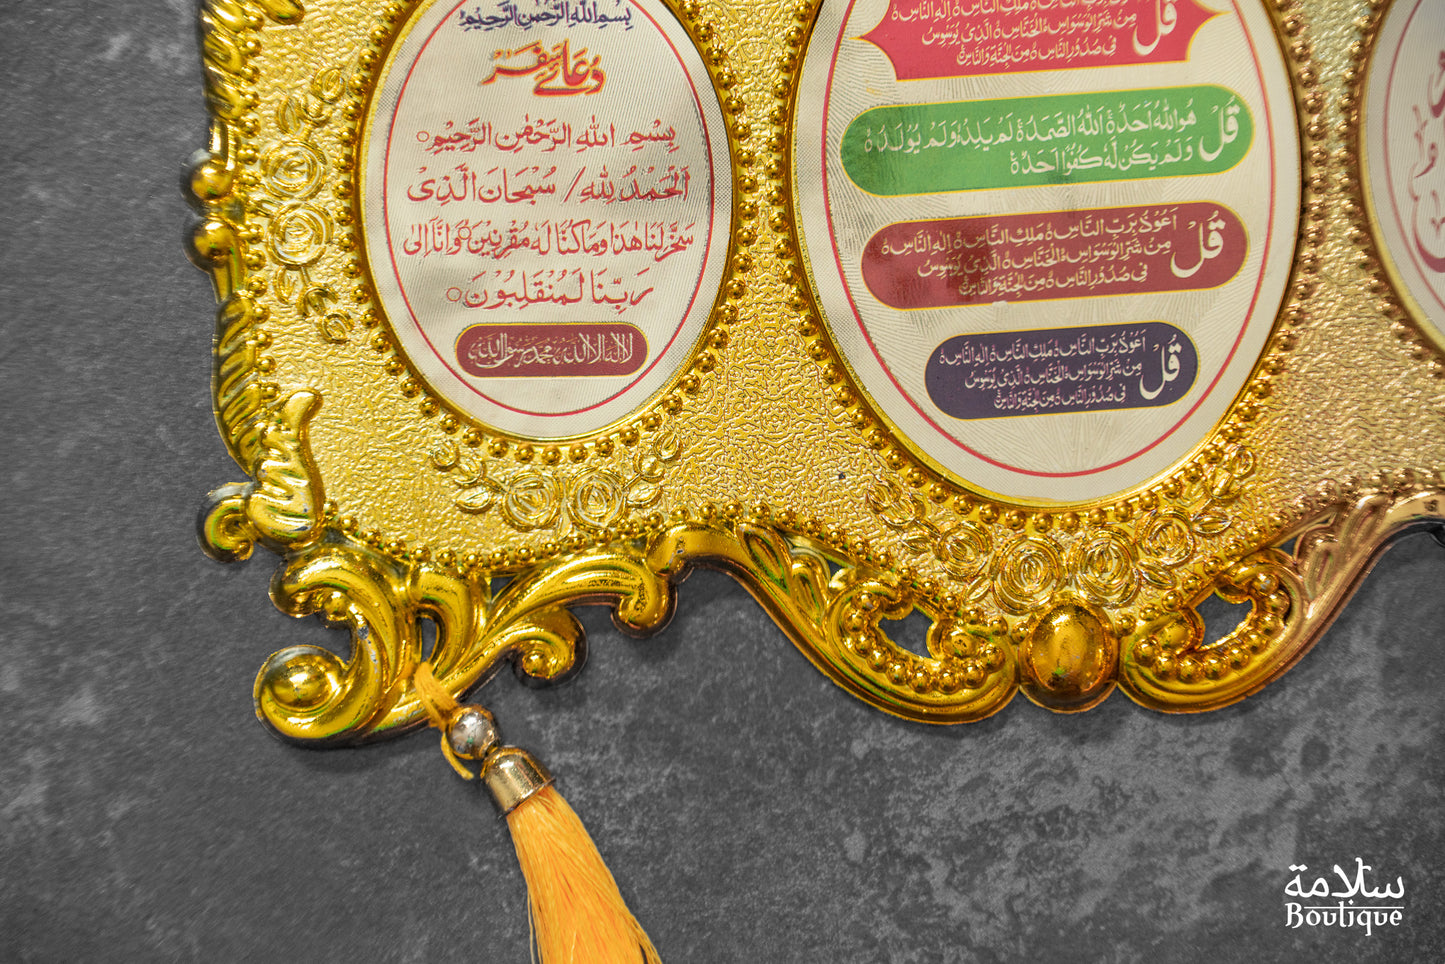 بِسْمِ اللّٰهِ الرَّحْمٰنِ الرَّحِيْمِ
دُعائے سفر
بِسْمِ اللّٰهِ الرَّحْمٰنِ الرَّحِيْمِ ○
اَلْحَمْدُ لِلّٰهِ / سُبْحَانَ الَّذِىْ
سَخَّرَ لَنَا هٰذَا وَمَا كُنَّا لَهٗ مُقْرِنِيْنَ ○ وَاِنَّا اِلٰى
رَبِّنَا لَمُنْقَلِبُوْنَ ○
لا اله الا الله محمد رسول الله
قُلْ
مِنْ شَرِّ الْوَسْوَاسِ ەالْخَنَّاسِ ە الَّذِىْ يُوَسْوِسُ
فِىْ صُدُوْرِ النَّاسِ ە مِنَ الْجِنَّةِ وَالنَّاسِ ە
قُلْ هُوَ اللّٰهُ اَحَدٌ ە اَللّٰهُ الصَّمَدُ ە لَمْ يَلِدْ ە وَلَمْ يُوْلَدْ ە
وَلَمْ يَكُنْ لَّهٗ كُفُوًا اَحَدٌ ە
قُلْ اَعُوْذُ بِرَبِّ النَّاسِ ە مَلِكِ النَّاسِ ە اِلٰهِ النَّاسِ ە
مِنْ شَرِّ الْوَسْوَاسِ ەالْخَنَّاسِ ە الَّذِىْ يُوَسْوِسُ
فِىْ صُدُوْرِ النَّاسِ ە مِنَ الْجِنَّةِ وَالنَّاسِ ە
قُلْ اَعُوْذُ بِرَبِّ النَّاسِ ە مَلِكِ النَّاسِ ە اِلٰهِ النَّاسِ ە
مِنْ شَرِّ الْوَسْوَاسِ ەالْخَنَّاسِ ە الَّذِىْ يُوَسْوِسُ
فِىْ صُدُوْرِ النَّاسِ ە مِنَ الْجِنَّةِ وَالنَّاسِ ە
سلامة
Boutique